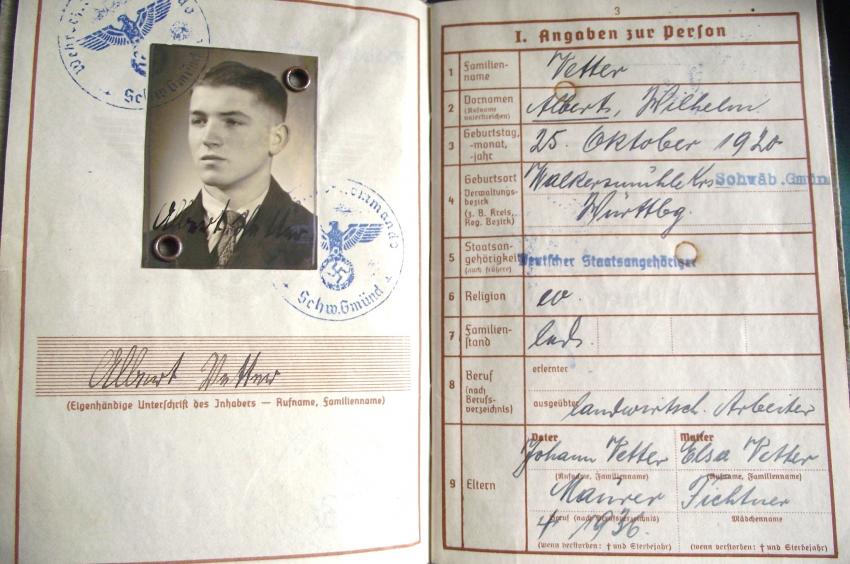 Schw. Gmünd
Albert Vetter
Schw. Gmünd
Albert Vetter
(Eigenhändige Unterschrift des Inhabers — Rufname, Familienname)
3
I. Angaben zur Person
1 Familien-
name
Vetter
2 Vornamen
(Rufname
unterstreichen)
Albert, Wilhelm
3 Geburtstag,
-monat,
-jahr
25. Oktober 1920
4 Geburtsort
Verwaltungs-
bezirk
(z. B. Kreis,
Reg. Bezirk)
Walkersmühle Krs Schwäb. Gmün
Württbg.
5 Staatsan-
gehörigkeit
(auch frühere)
Deutscher Staatsangehöriger
6 Religion
ev.
7 Familien-
stand
led.
8 Beruf
(nach
Berufs-
verzeichnis)
erlernter
ausgeübter landwirtsch. Arbeiter
9 Eltern
Vater Mutter
Johann Vetter Elsa Vetter
(Rufname, Familienname) (Rufname, Familienname)
Maurer Fichtner
Beruf (nach Berufsverzeichnis) Mädchenname
† 1936.
(wenn verstorben: † und Sterbejahr) (wenn verstorben: † und Sterbejahr)